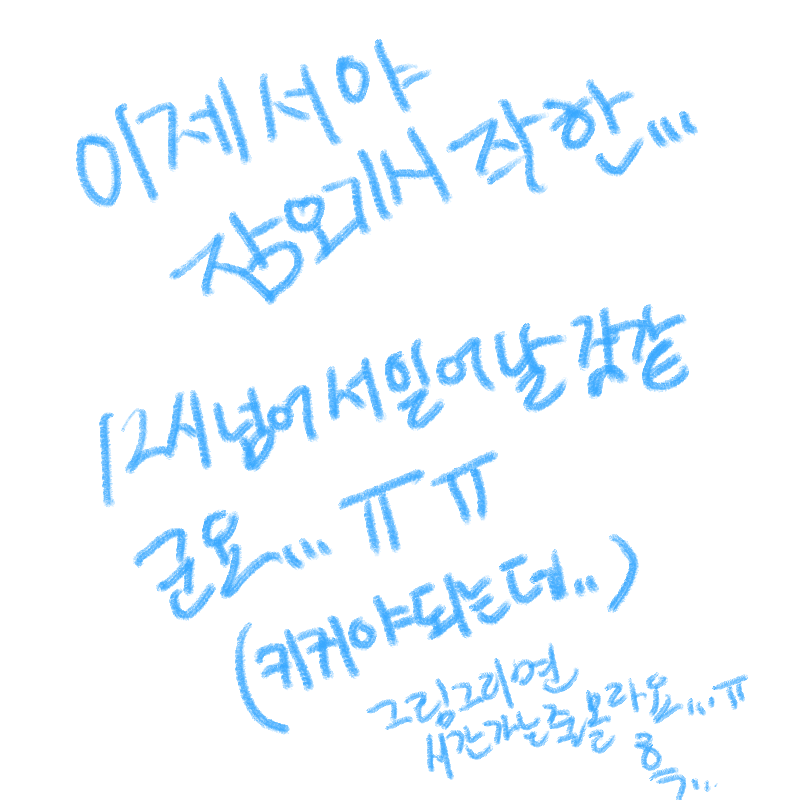 이제서야
잠오기시작한...
12시넘어서일어날것같
군요... ㅠㅠ
(키커야되는데..)
그림그리면
시간가는줄몰라요...ㅠ
흑...